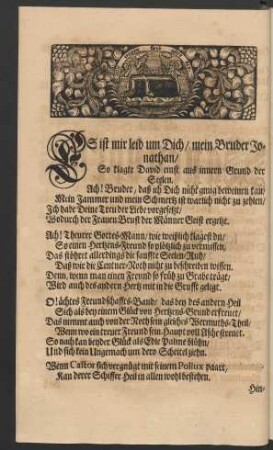 ES ist mir leid um Dich / mein Bruder Jo-
nathan /
So klagte David einst aus innern Grund der
Seelen.
Ach! Bruder, daß ich Dich nicht gnug beweinen kan /
Mein Jammer und mein Schmertz ist warlich nicht zu zehlen /
Ich habe Deine Treu der Liebe vorgesetzt /
Wodurch der Frauen Brust der Männer Geist ergetzt.
Ach! Theurer Gottes-Mann / wie weißlich klagest du /
So einen Hertzens-Freund so plötzlich zu vermissen /
Das störhet allerdings die sanffte Seelen-Ruh /
Daß wir die Centner-Noth nicht zu beschreiben wissen.
Denn, wenn man einen Freund so früh zu Grabe trägt /
Wird auch des andern Hertz mit in die Grufft gelegt.
O! ächtes Freundschaffts-Band / das bey des andern Heil
Sich als bey einem Glück von Hertzens-Grund erfreuet /
Das nimmt auch von der Noth sein gleiches Wermuths-Theil /
Wenn wo ein treuer Freund sein Haupt voll Asche streuet.
So nach kan beyder Glück als Edle Palme blühn /
Und sich kein Ungemach um dero Scheitel ziehn.
Wenn Castor sich vergnügt mit seinem Pollux paart,
Kan derer Schiffer Heil in allen wohl bestehen.
Hin-